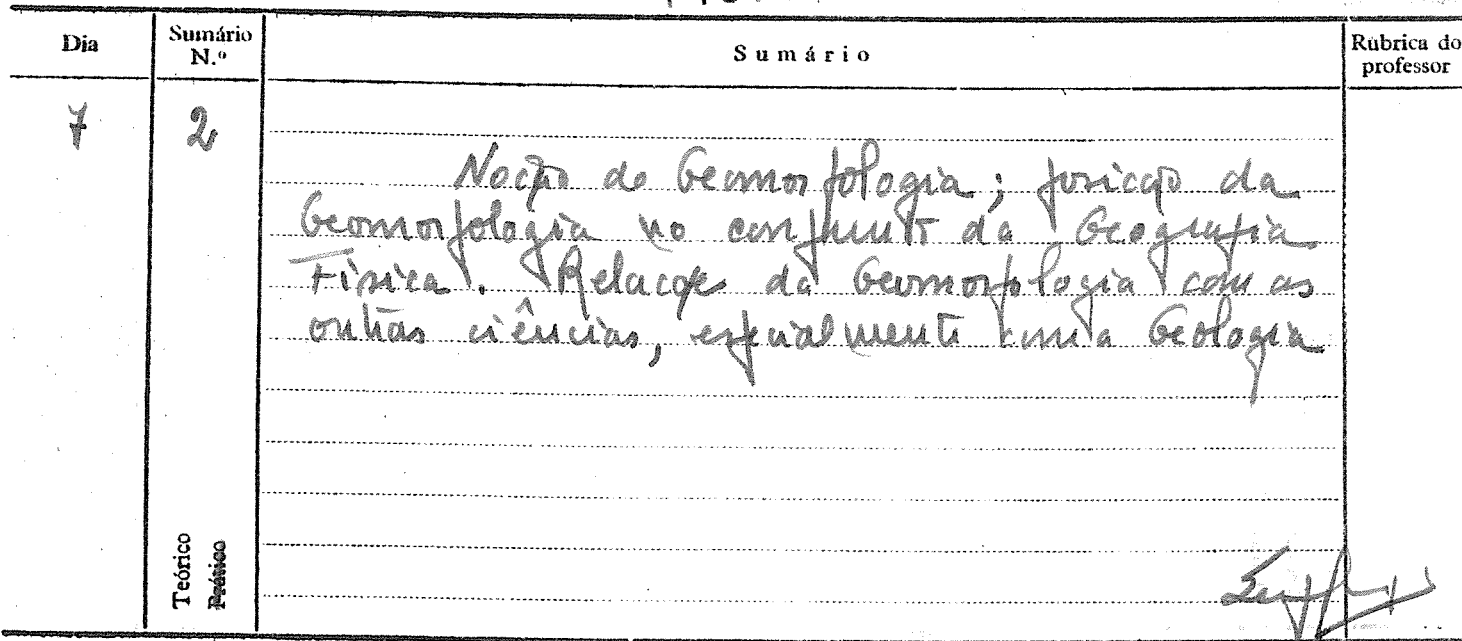 Dia
Sumário N.º
Sumário
Rubrica do professor
7
2
Noção de Geomorfologia; posição da
Geomorfologia no conjunto da Geografia
Física. Relações da Geomorfologia com as
outras ciências, especialmente com a Geologia
Teórico
Prático